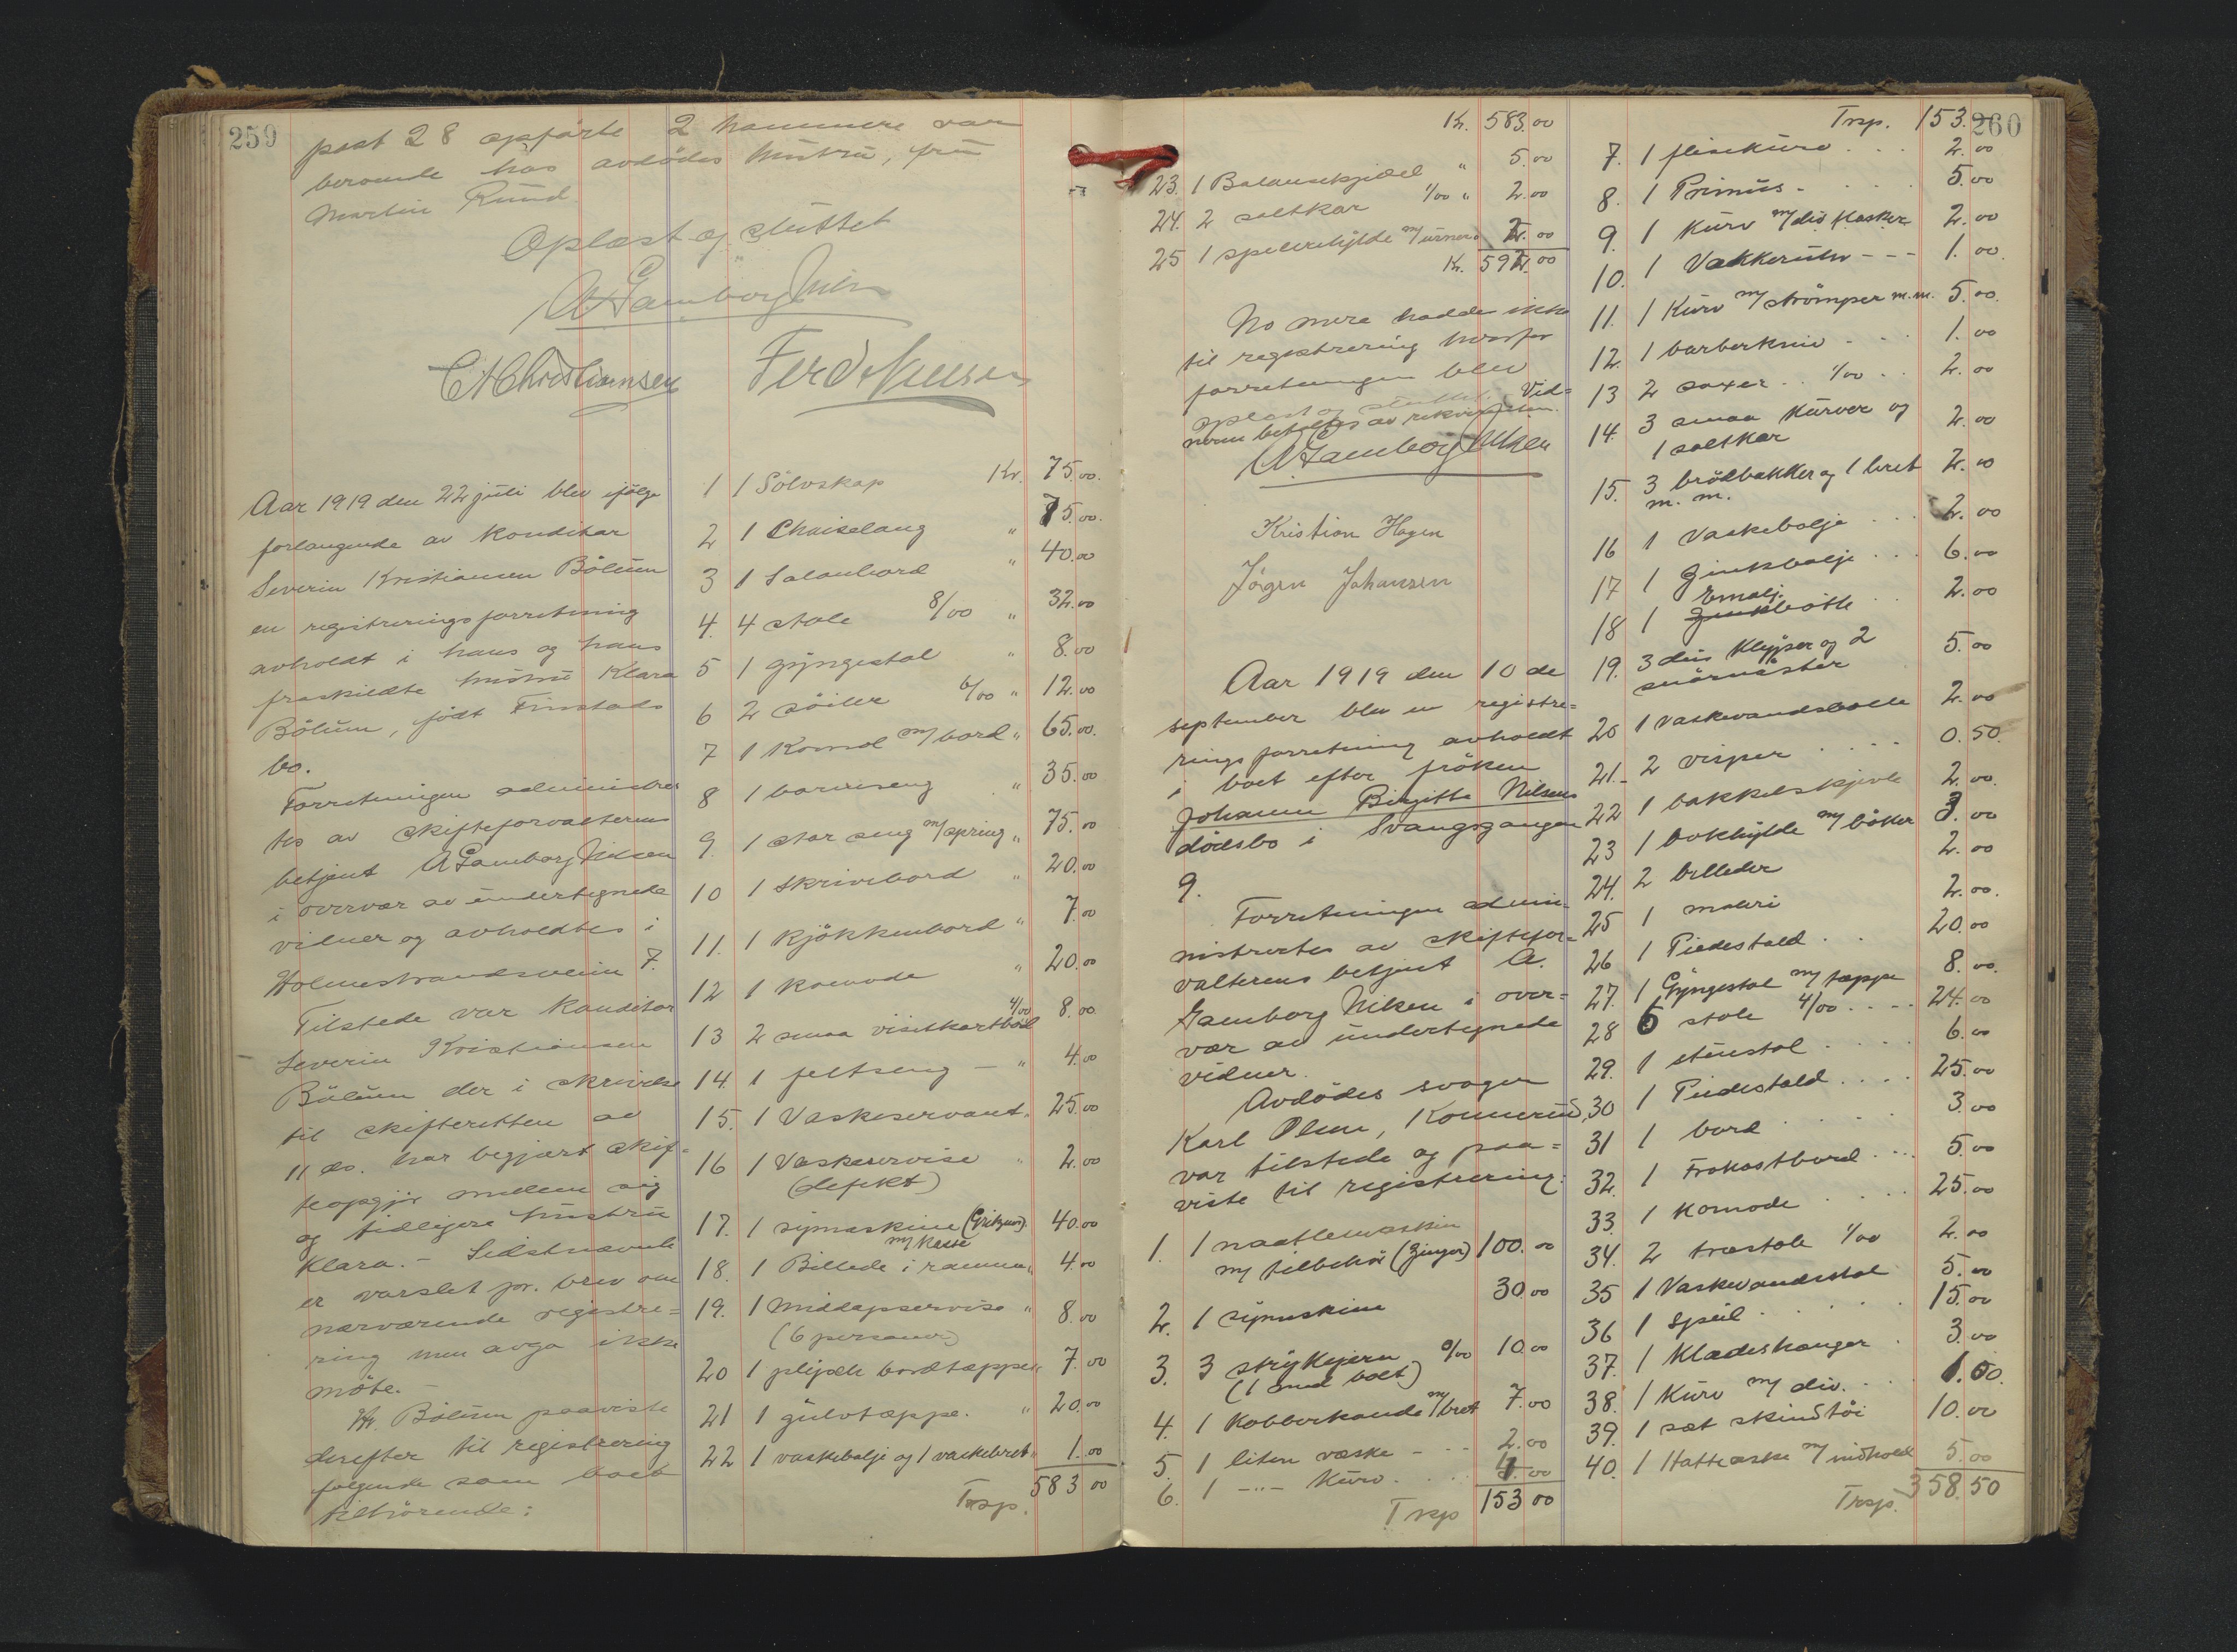 259
post 28 opførte 2 hammere var
beroende hos avdødes hustru, fru
Martin Ruud
Oplæst og sluttet
A Gamborg Nilsen
C A Christiansen Ferd Nilsen
Aar 1919 den 22 juli blev ifølge
forlangende av konditor
Severin Kristiansen Bölum
en registreringsforretning
avholdt i hans og hans
fraskildte hustru Klara
Bölum, født Finstads
bo.
Forretningen administrer
tes av skifteforvalterens
betjent A Gamborg Nielsen
i overvær av undertegnede
vidner og avholdtes i
Holmestrandsveien 7.
Tilstede var Konditor
Severin Kristiansen
Bölum der i skrivelse
til skifteretten av
11 ds. har begjært skif-
teopgjør mellem sig
og tidligere hustru
Klara. - Sidstnævnte
er varslet pr. brev om
nærværende registre=
ring men avga ikke
møte. -
Hr. Bölum paaviste
derefter til registrering
følgende som boet
tilhørende:
1 1 Sölvskap Kr. 75.00
2 1 Chaiselong " 75.00
3 1 Salonbord " 40.00
4. 4 stole 8/00 " 32.00
5 1 gyngestol " 8.00
6 2 söiler 6/00 " 12.00
7 1 Komod m/bord " 65.00
8 1 barneseng " 35.00
9. 1 stor seng m/spring " 75.00
10 1 Skrivebord " 20.00
11. 1 Kjøkkenbord " 7.00
12 1 komode " 20.00
13 2 smaa visitkartbord 4/00 8.00
14. 1 feltseng - " 4.00
15. 1 Vaskeservant " 25.00
16 1 Vaskeservise " 2.00
(defekt)
17. 1 symaskine (Gritzner) 40.00
m/kasse
18. 1 Billede i ramme " 4.00
19. 1 middagsservise " 8.00
(6 personer)
20 1 plysch bordtæppe " 7.00
21 1 gulvtæppe. " 20.00
22 1 vaskebalje og 1 vaskebret " 1.00
Trsp. 583 00
Kr. 583.00
23. 1 Balansekjedel " 5.00
24. 2 saltkar 1/00 " 2.00
25 1 speilhylde m/urner " 2.00
Kr. 592.00
No mere hadde ikke
til registrering hvorfor
forretningen blev
oplæst og sluttet. Vid=
nerne betaltes av rekvirenten.
A Gamborg Nilsen
Kristian Hagen
Jögen Johansen
Aar 1919 den 10 de
september blev en registre=
rings forretning avholdt
i boet efter frøken
Johanne Birgitte Nilsens
dødsbo i Svangsgangen
9.
Forretningen admi-
nistrertes av skiftefor=
valterens betjent A.
Gamborg Nilsen i over=
vær av undertegnede
vidner.
Avdødes svoger
Karl Olsen, Konnerud,
var tilstede og paa=
viste til registrering:
1. 1 naatlemaskin
m/ tilbehör (Zinger) 100.00
2. 1 symskine 30.00
3. 3 strykejern 0/00 10.00
(1 med bolt)
4. 1 Kobberkande m/bret 7.00
5. 1 liten væske - - - 2.00
6. 1 -"- Kurv. . . . 4.00
Trsp 153 00
260
Trsp. 153.
7. 1 flisekurv . . . 2.00
8. 1 Primus - . . . . 5.00
9. 1 Kurv m/div flasker 2.00
10. 1 Vækkeruhr - - - 1.00
11. 1 Kurv m/strömper m.m. 5.00
12. 1 barberkniv - . . . 1.00
13 2 saxer . . 1/00 . . 2.00
14. 3 smaa Kurver og 2.00
1 saltkar
15. 3 brödbakker og 1 bret 2.00
m. m.
16 1 Vaskebalje . . . 2.00
17 1 Zinkbalje . . . 6.00
18 1 Emalj. Zinkbøtte . . 2.00
19. 3 dus Klyper og 2 5.00
snörnöster
20 1 Vaskevandsbolle 2.00
21. - 2 visper . . . . 0.50
22 1 bakkelskjevle 2.00
23 1 bokhylde m/ böker 3.00
24. 2 billeder 2.00
25 1 maleri 2.00
26 1 Piedestald . . 20.00
27. 1 Gyngestol m/ tæppe 8.00
28 6 stole 4/00 . . . . 24.00
29. 1 stuestol . . . . 6.00
30 1 Piedestald . . . . 25.00
31 1 bord . . . . 3.00
32. 1 Frokostbord . . . 5.00
33. 1 Komode . . . . 25.00
34. 2 træstole 1/00 2.00
35 1 Vaskevandsstol 5.00
36 1 Speil . . . . . 15.00
37. 1 Klædeshenger . 3.00
38. 1 Kurv m/ div. . . . 1.50
39. 1 sæt skindtöi 10.00
40. 1 Hatteæske m/ indhold 5.00
Trsp. 358.50